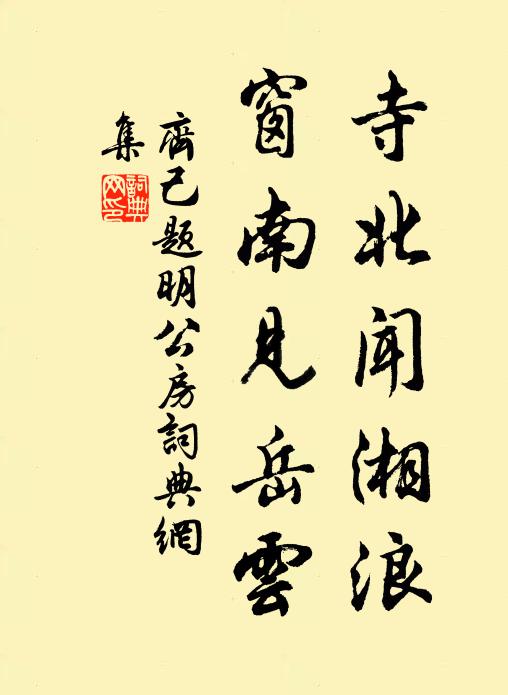 寺北聞湘浪
窗南見岳雲
齊己題明公房詞典網
集
詞典
网印